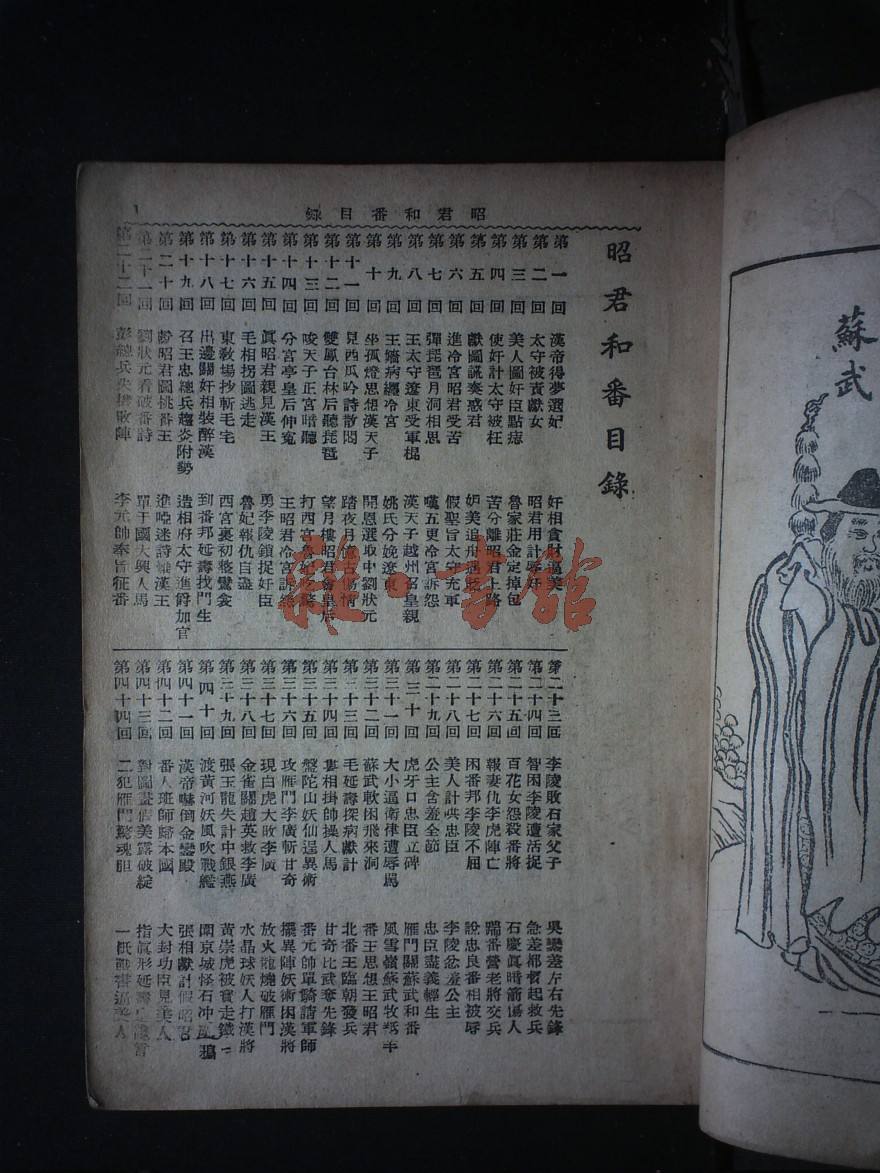 昭君和番目錄
昭君和番目錄
第一回 漢帝得夢選妃 奸相貪財逼美
第二回 太守被責獻女 昭君用計辱奸
第三回 美人圖奸臣點痣 魯家莊金定掉包
第四回 使奸計太守被枉 苦分離昭君上路
第五回 獻圖謊奏惑君 妬美追舟
第六回 進冷宮昭君受苦 假聖旨太守充軍
第七回 彈琵琶月洞相思 嘆五更冷宮訴怨
第八回 王太守遼東受軍棍 漢天子越州召皇親
第九回 王嬙病纏冷宮 姚氏分娩遼東
第十回 坐孤燈思想漢天子 開恩選取中劉狀元
第十一回 見西瓜吟詩散悶 踏夜月傷情
第十二回 雙鳳台林后聽琵琶 望月樓昭君會皇后
第十三回 唆天子正宮暗聽 打西宮魯妃
第十四回 分宮亭皇后伸冤 王昭君冷宮訴
第十五回 眞昭君親見漢王 勇李陵鎖捉奸臣
第十六回 毛相拐圖逃走 魯妃報仇自盡
第十七回 東敎場抄斬毛宅 西宮裏初整鸞衾
第十八回 出邊關奸相裝醉漢 到番邦延壽找門生
第十九回 召王忠總兵趨炎附勢 造相府太守進爵加官
第二十回 獻昭君圖挑番王 進啞迷詩漢王
第二十一回 劉狀元看破番詩 單于國大興人馬
第二十二回 彭總兵失機敗陣 李元帥奉旨征番
第二十三回 李陵敗石家父子 吳鑾差左右先鋒
第二十四回 智困李陵遭活捉 急差都督起救兵
第二十五回 百花女怨殺番將 石慶眞暗箭傷人
第二十六回 報妻仇李虎陣亡 踹番營老將交兵
第二十七回 困番邦李陵不屈 說忠良番相被辱
第二十八回 美人計哄忠臣 李陵忿羞公主
第二十九回 公主含羞全節 忠臣盡義輕生
第三十回 虎牙口忠臣立碑 雁門關蘇武和番
第三十一回 大小逼衛律遭辱罵 風雪嶺蘇武牧羝羊
第三十二回 蘇武軟困飛來洞 番王思想王昭君
第三十三回 毛延壽探病獻計 北番王臨朝發兵
第三十四回 婁相掛帥操人馬 甘奇比武奪先鋒
第三十五回 盤陀山妖仙逞異術 番元帥單騎請軍師
第三十六回 攻雁門李廣斬甘奇 擺異陣妖術困漢將
第三十七回 現白虎大敗李廣 放火龍燒破雁門
第三十八回 金雀關趙英救李廣 水晶球妖人打漢將
第三十九回 張玉龍失計中銀燕 黃崇虎被寶走鐵
第四十回 渡黃河妖風吹戰艦 困京城怪石冲
第四十一回 漢帝嚇倒金鑾殿 張相獻計假昭君
第四十二回 番人班師歸本國 大封功臣見美人
第四十三回 對圖畫假美露破綻 指眞形延壽
第四十四回 二犯雁門驚魂胆 一紙
蘇武
雜·書館